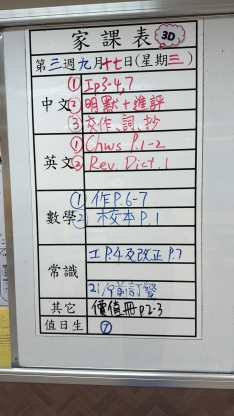 家課表 3D
第三週九月十七日(星期三)
中文
① Ip3-4,7
② 明默+進評
③ 交作、詞、抄
英文
① Chws P.1-2
② Rev. Dict. 1
數學
① 作P.6-7
② 校本P.1
常識
工P.4及改正P.7
21/9前訂餐
其它
價值冊p2-3
值日生
⑦